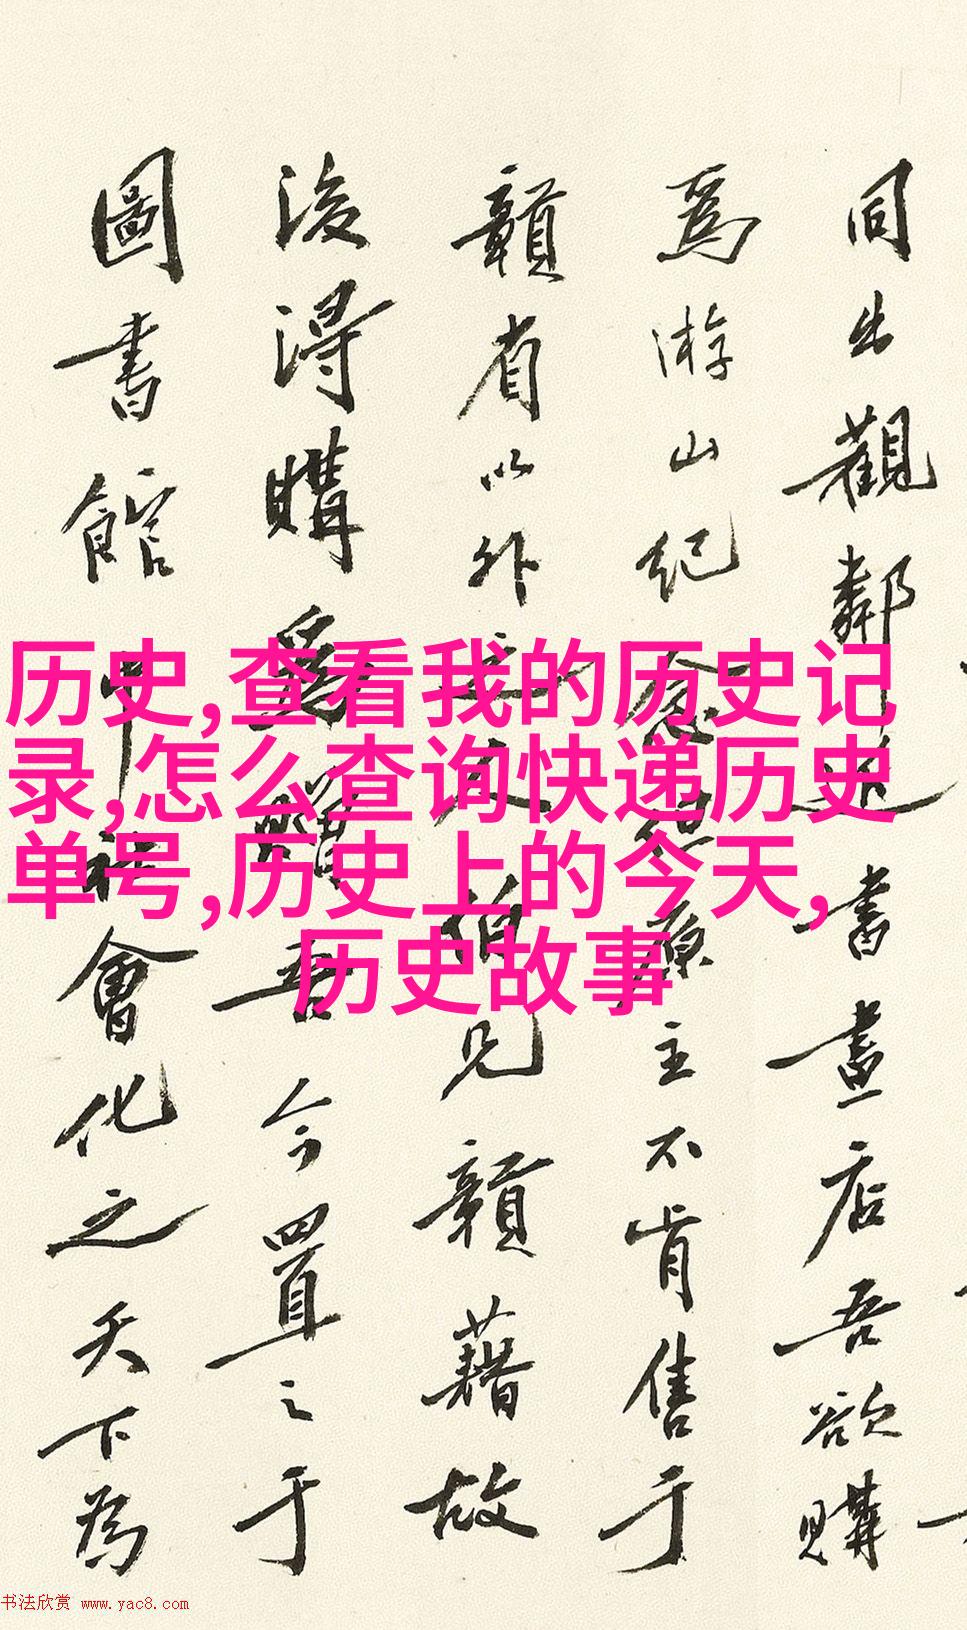 同出觀鄰近書畫店吾欲購
爲游山紀念但原主不肯售于
贛省以外之人伯兄贛藉故
後得購爲贈吾今置之于
圖書館中社會化之天下為
历史,查看我的历史记
录,怎么查询快递历史
单号,历史上的今天,
历史故事
书法欣赏 www.yac8.com